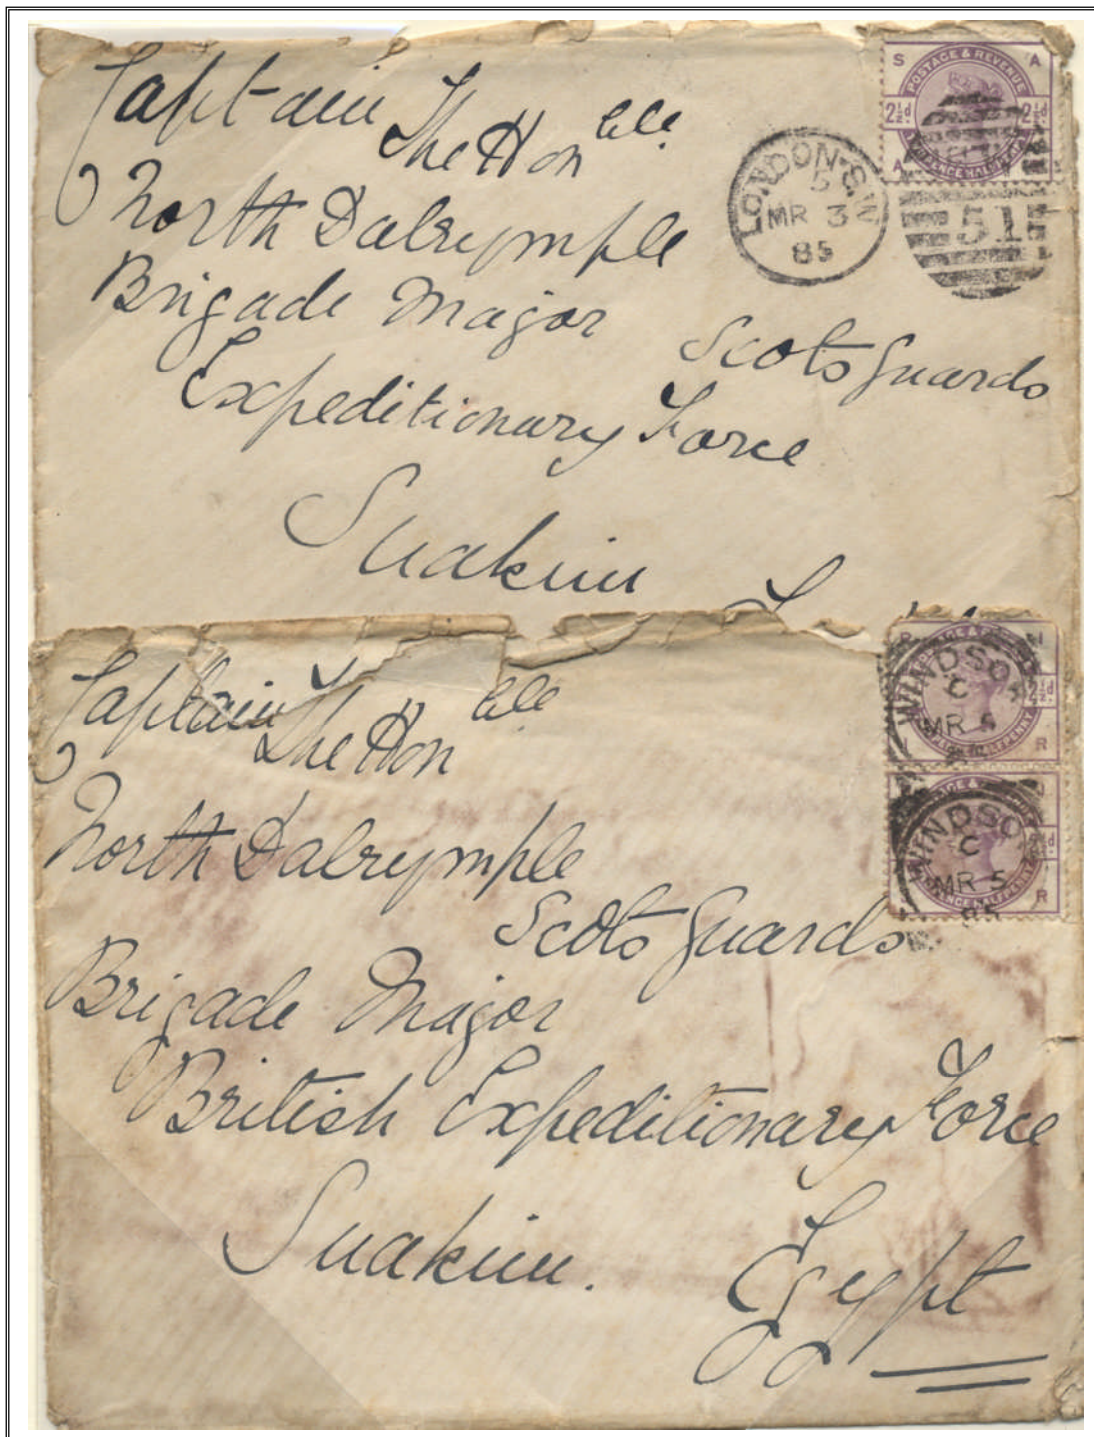 Captain The Honble.
North Dalrymple
Brigade Major
Scots Guards
Expeditionary Force
Suakim
S A
POSTAGE & REVENUE
2½d. 2½d.
A
LONDON·S.W
5
MR 3
85
51
Captain The Honble
North Dalrymple
Scots Guards
Brigade Major
British Expeditionary Force
Suakim.
Egypt
2½d.
R
WINDSOR
C
MR 5
WINDSOR
C
MR 5
85
R